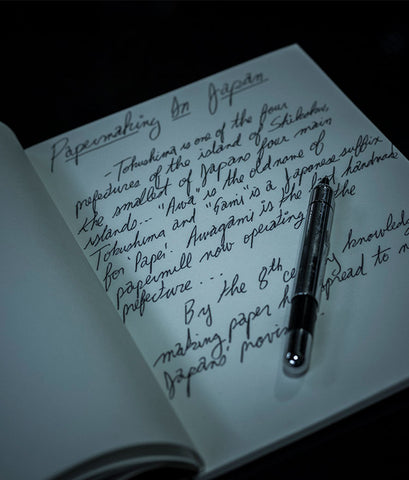 Papermaking In Japan
-Tokushima is one of the four
prefectures of the island of Shikoku,
the smallest of Japans four main
islands... "Awa" is the old name of
Tokushima and "Gami" is a Japanese suffix
for 'Paper'. Awagami is the last handmade
papermill now operating the
prefecture...
By the 8th knowledg
making paper spread to
Japans'